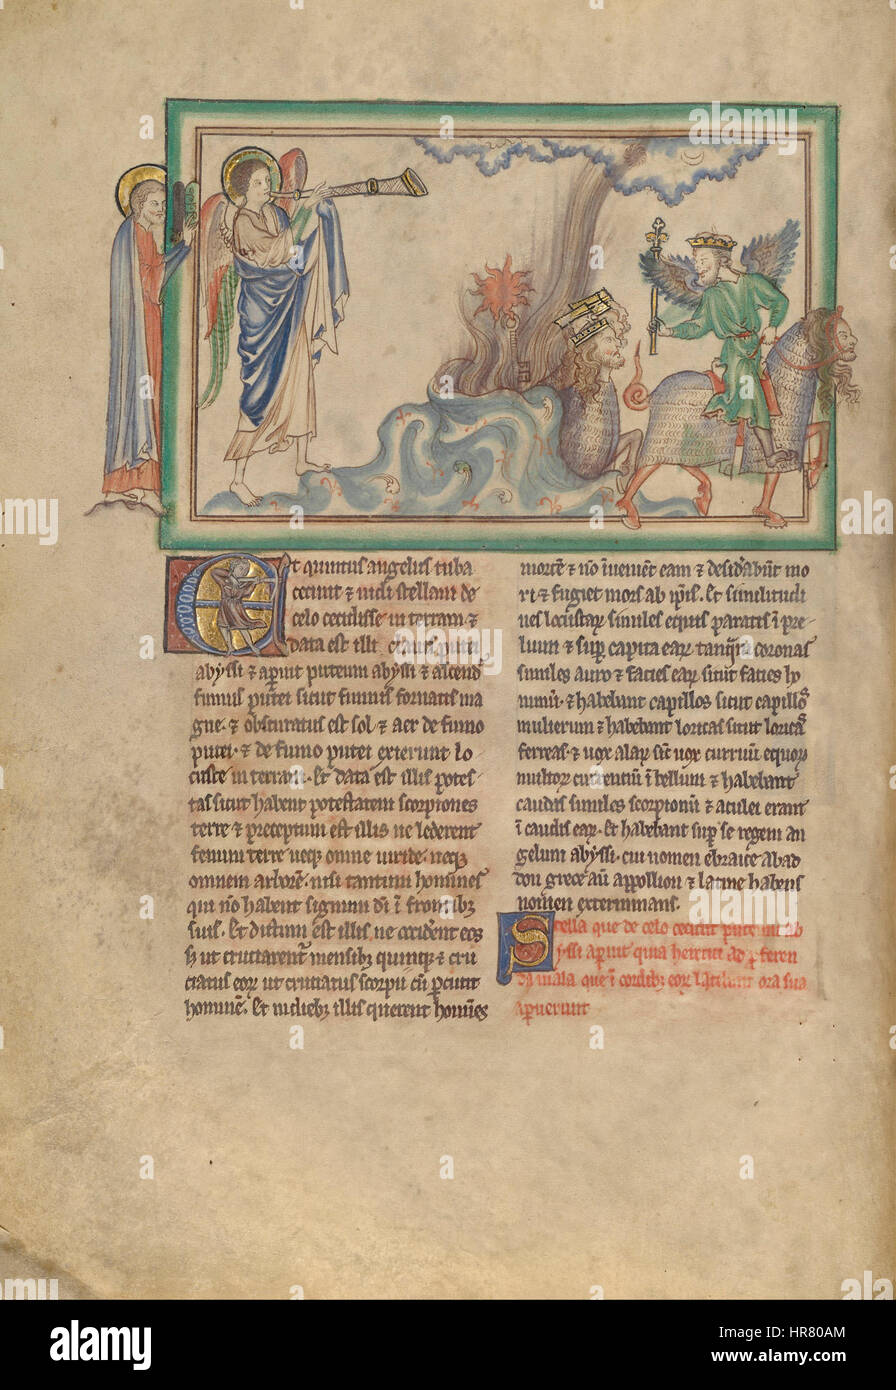 Et quintus angelus tuba
cecinit ⁊ uidi stellam de
celo cecidisse in terram ⁊
data est illi clauis putei
abyssi ⁊ aperuit puteum abyssi ⁊ ascend
fumus putei sicut fumus fornacis ma
gne · ⁊ obscuratus est sol ⁊ aer de fumo
putei · ⁊ de fumo putei exierunt lo
custe in terram · Et data est illis potes
tas sicut habent potestatem scorpiones
terre ⁊ preceptum est illis ne lederent
fenum terre neqꝫ omne uiride · neqꝫ
omnem arborē · nisi tantum homines
qui nō habent signum dī ī frontibꝫ
suis · Et dictum est illis ne occiderent eos
sꝫ ut cruciarent mensibꝫ quinqꝫ ⁊ cru
ciatus eoꝝ ut cruciatus scorpii cū percutit
hominē · Et in diebꝫ illis querent homīes
mortē ⁊ nō īuenient eam ⁊ desiderabūt mo
ri ⁊ fugiet mors ab ipis · Et similitudi
nes locustaꝝ similes equis paratis ī pre
lium ⁊ super capita eaꝝ tanquā coronas
similes auro ⁊ facies eaꝝ sicut facies ho
minū · ⁊ habebant capillos sicut capillos
mulierum ⁊ habebant loricas sicut loricas
ferreas · ⁊ uox alaꝝ sic uox curruū equoꝝ
multoꝝ currentiū ī bellum ⁊ habebant
caudas similes scorpionū ⁊ aculei erant
ī caudis eaꝝ · Et habebant super se regem an
gelum abyssi · cui nomen ebraice abad
don grece aū appollion ⁊ latine habens
nomen exterminans ·
Stella que de celo cecidit puteum ab
yssi aperuit quia heretici ad proferen
da mala que ī cordibꝫ eoꝝ latebant ora sua
aperuerunt
alamy
Image ID: HR80AM
www.alamy.com